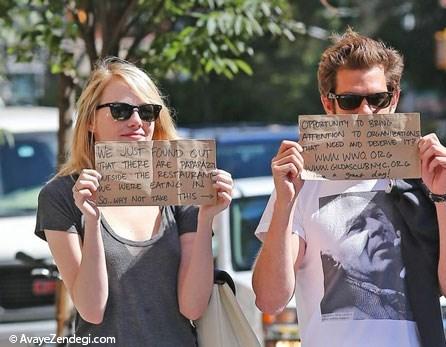 WE JUST FOUND OUT
THAT THERE ARE PAPARAZZI
OUTSIDE THE RESTAURANT
WE WERE EATING IN.
SO... WHY NOT TAKE THIS →
OPPORTUNITY TO BRING
ATTENTION TO ORGANIZATIONS
THAT NEED AND DESERVE IT?
WWW.WWO.ORG
WWW.GILDASCLUBNYC.ORG
a great day!
© www.AvayeZendegi.com